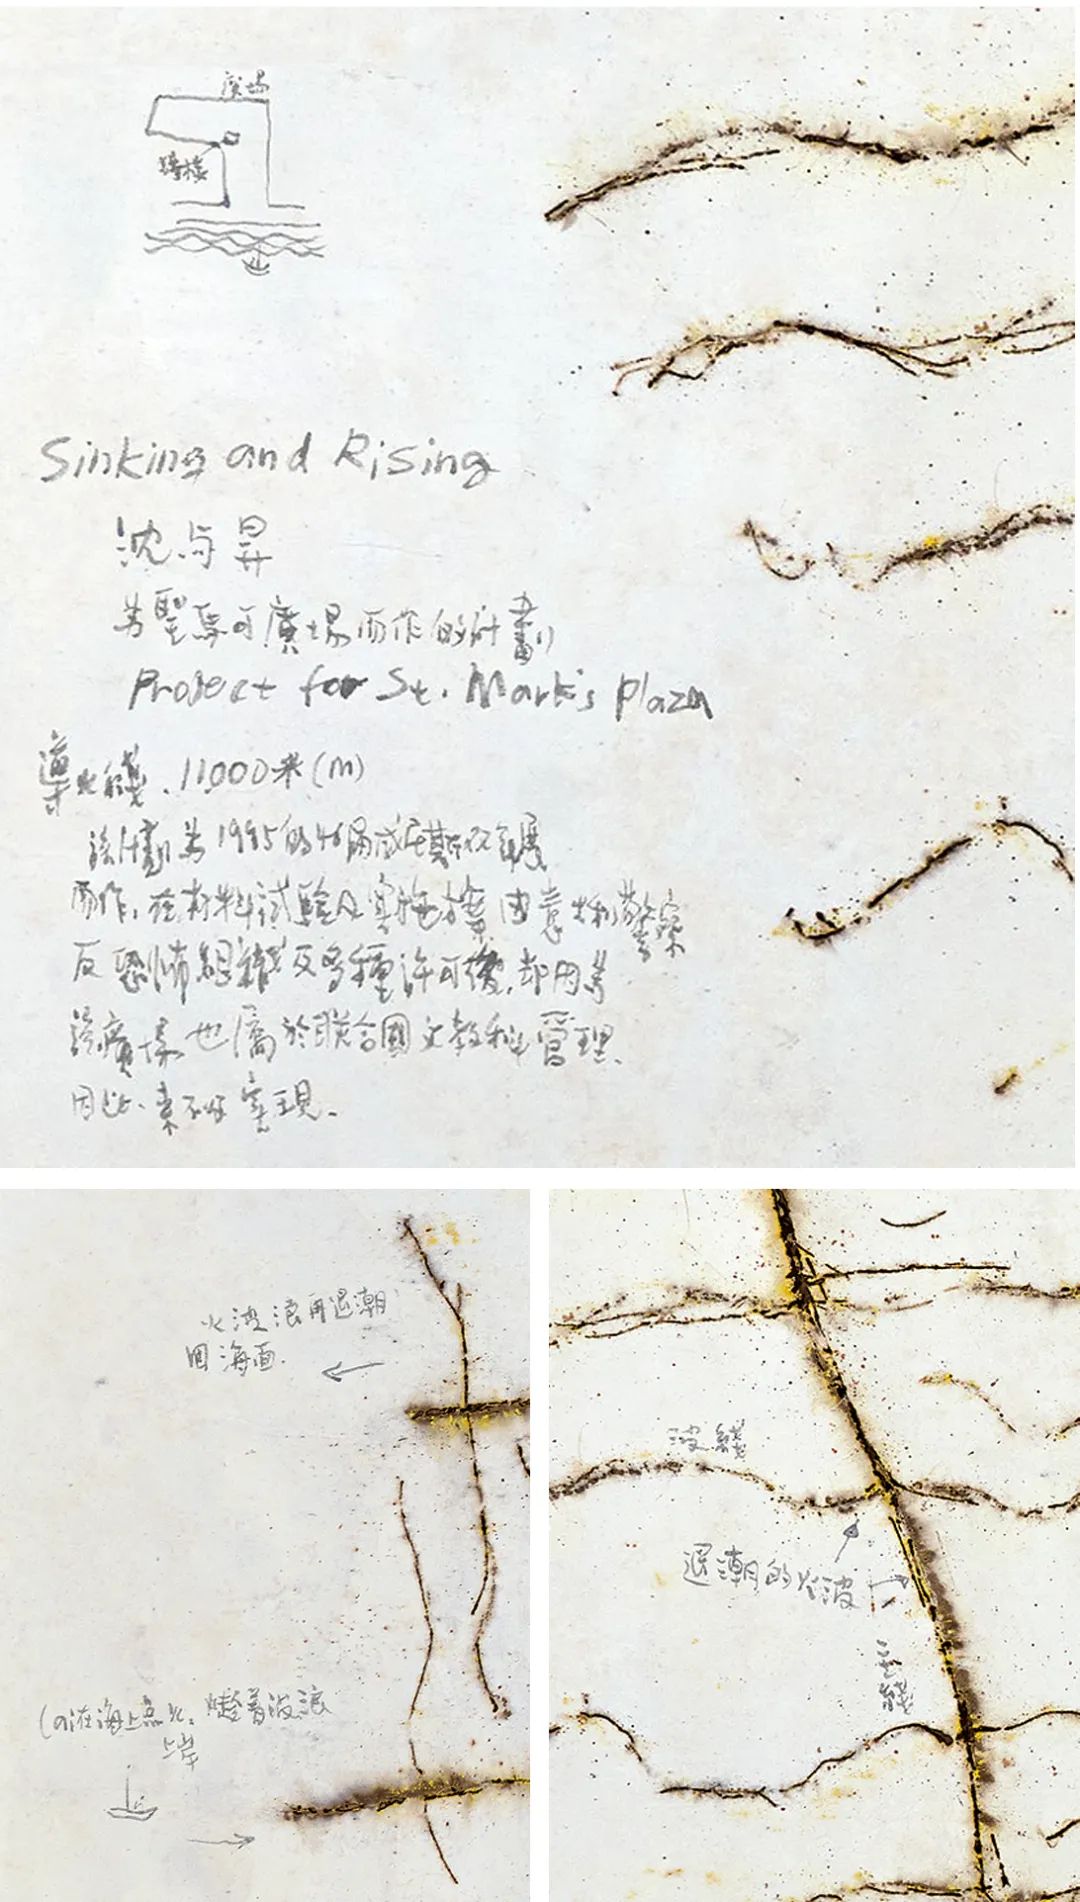 廣場
鐘樓
Sinking and Rising
沈与昇
为聖馬可廣場而作的計劃
Project for St. Mark's Plaza
導火綫、11,000米(m)
該計劃为1995的46屆威尼斯双年展
而作，在材料試驗及实施方案由意大利警察
反恐怖組織及多種許可後，却因为
該廣場也屬於联合國文教科管理、
因此、未好实現.
火波浪再退潮
回海面.
波綫
退潮的火波
主綫
(a)在海上点火、趁着波浪
上岸